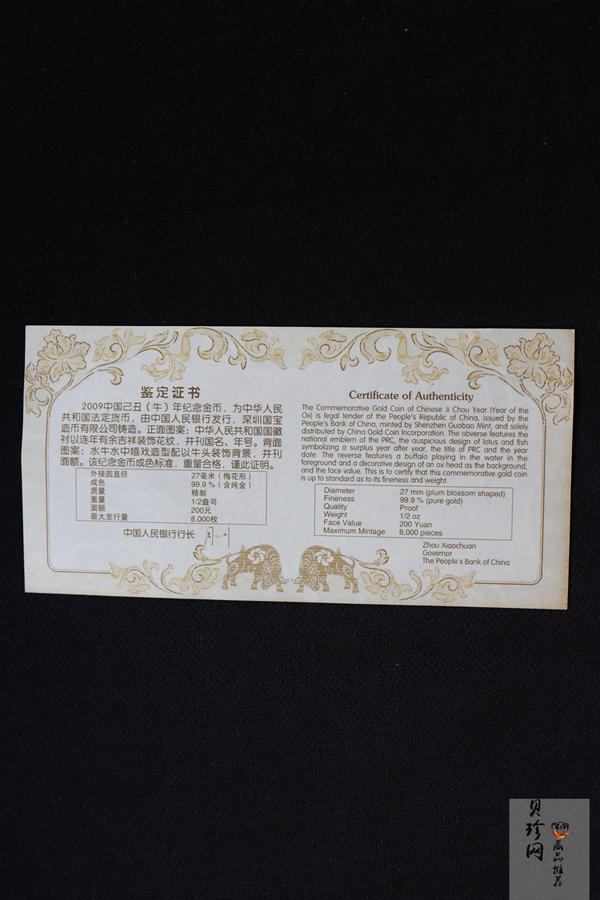 鉴定证书
2009中国己丑（牛）年纪念金币，为中华人民
共和国法定货币，由中国人民银行发行，深圳国宝
造币有限公司铸造。正面图案：中华人民共和国国徽
衬以连年有余吉祥装饰花纹，并刊国名、年号。背面
图案：水牛水中嬉戏造型配以牛头装饰背景，并刊
面额。该纪念金币成色标准，重量合格，谨此证明。
外接圆直径 27毫米（梅花形）
成色 99.9 %（含纯金）
质量 精制
重量 1/2盎司
面额 200元
最大发行量 8,000枚
中国人民银行行长
Certificate of Authenticity
The Commemorative Gold Coin of Chinese Ji Chou Year (Year of the
Ox) is legal tender of the People's Republic of China, issued by the
People's Bank of China, minted by Shenzhen Guobao Mint, and solely
distributed by China Gold Coin Incorporation. The obverse features the
national emblem of the PRC, the auspicious design of lotus and fish
symbolizing a surplus year after year, the title of PRC and the year
date. The reverse features a buffalo playing in the water in the
foreground and a decorative design of an ox head as the background,
and the face value. This is to certify that this commemorative gold coin
is up to standard as to its fineness and weight.
Diameter 27 mm (plum blossom shaped)
Fineness 99.9 % (pure gold)
Quality Proof
Weight 1/2 oz
Face Value 200 Yuan
Maximum Mintage 8,000 pieces
Zhou Xiaochuan
Governor
The People's Bank of China
贝珍网
藏品推荐